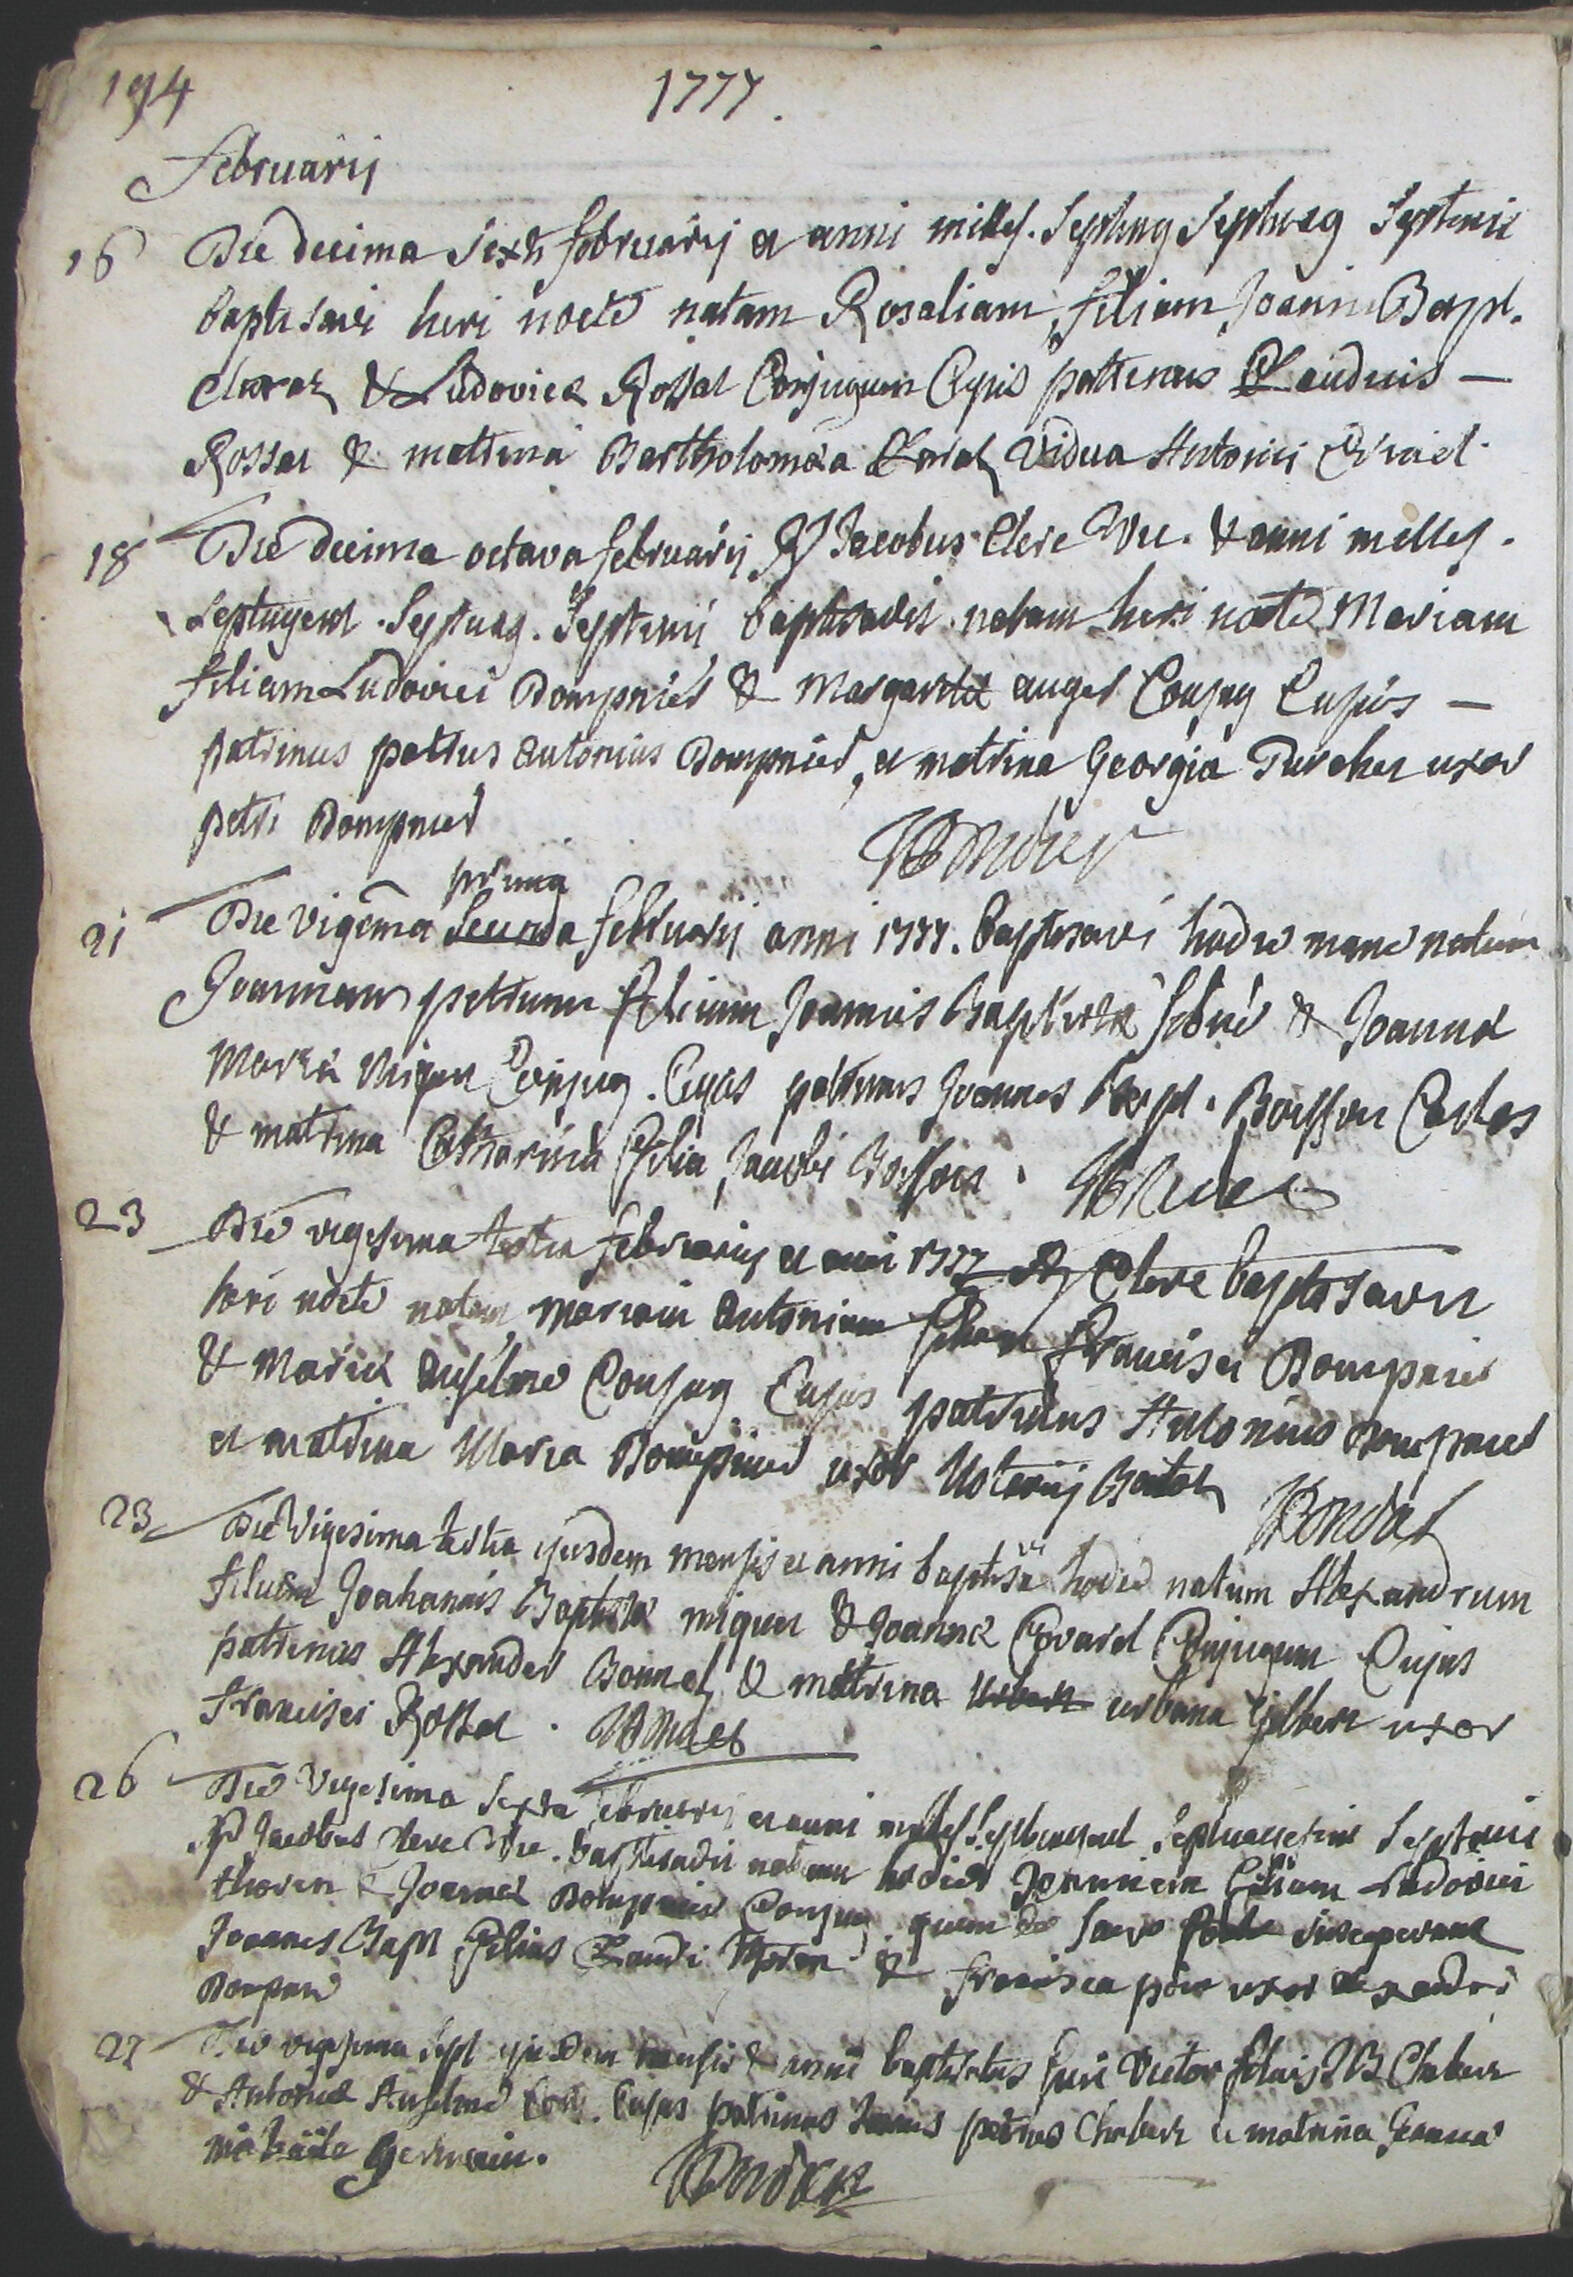 194 1777.
Februarij
16 Die decima Sexta februarij et anni milles. Septing Septuag Septimi
baptisavi heri nocte natam Rosaliam filiam Joannis Bapt.
Claraz & Ludovicæ Rossat Conjugum Cujus patrinus Claudius —
Rossat & matrina Bartholomæa Claraz Vidua Antonii
18 Die decima octava februarij Rd Jacobus Clere Vic. & anni milles.
Septingent. Septuag. Septimi baptisavit natam heri nocte Mariam
filiam Ludovici Dompnier & Margaritæ auger Conjug Cujus —
patrinus petrus antonius Dompnier, et matrina Georgia Turcher uxor
petri Dompnier
prima
21 Die vigesima Secunda februarij anni 1777. baptisavi hodie mane natum
Joannem petrum filium Joannis Baptistæ & Joannæ
Mariæ Miquer Conjug. Cujus patrinus Joannes Bapt. Boisson Cælebs
& matrina Catharina filia Jacobi Bosson.
23 Die vigesima tertia februarij et anni 1777 Rd Clere baptisavit
heri nocte natam Mariam Antoniam filiam Francisci Dompnier
& Mariæ Anselme Conjug Cujus patrinus Antonius Dompnier
et matrina Maria Dompnier uxor
23 Die Vigesima tertia ejusdem mensis et anni baptisavi hodie natum Alexandrum
filium Joahannis Baptistæ miquer & Joannæ Covarel Conjugum Cujus
patrinus Alexander Bonnel & matrina urbana Gilbert uxor
Francisci Rossat.
26 Die Vigesima Sexta februarij et anni milles Septingent Septuagesimi Septimi
Rd Jacobus Clere Vic. baptisavit natum hodie Joannem filium Ludovici
& Joannæ Dompnier Conjug. quem de Sacro fonte susceperunt
Joannes Bapt filius Claudi & Francisca uxor Alexandri
Dompnier
27 Die vigesima Sept ejusdem mensis & anni baptisatus fuit Victor filius J B Chabert
& Antoniæ Anselme Conj. Cujus patrinus petrus Chabert et matrina Joanna
Germain.